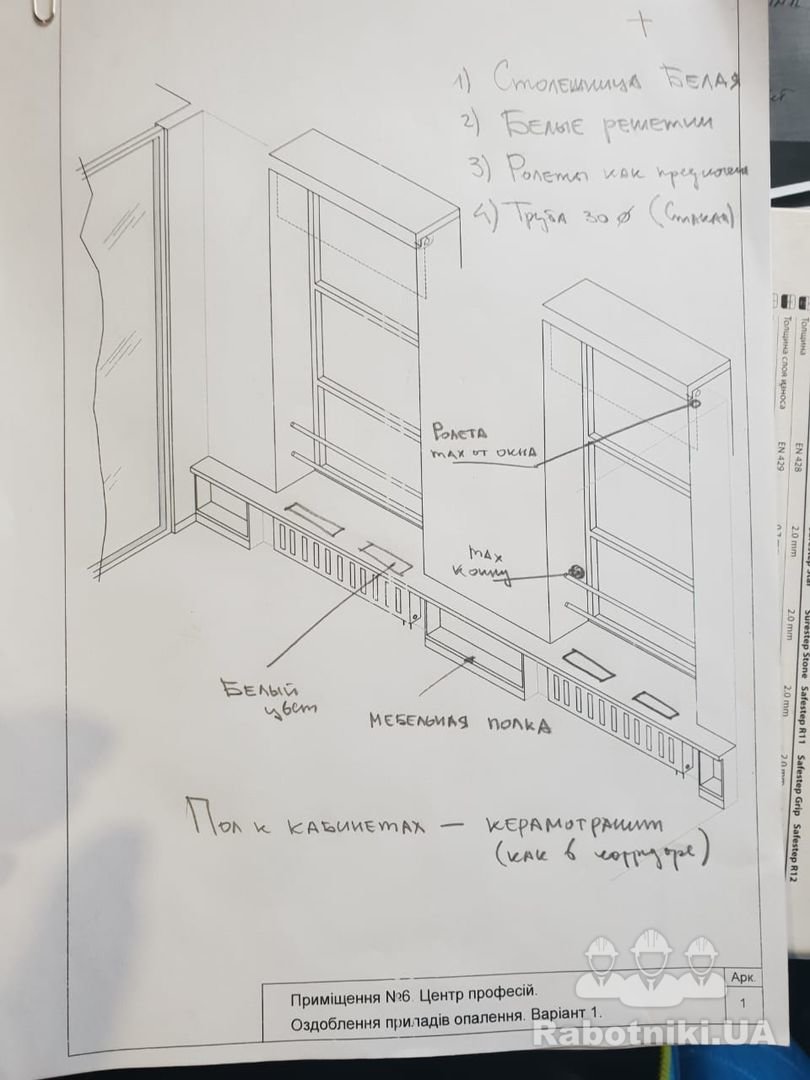 1) Столешница Белая
2) Белые решетки
3) Ролеты как
4) Труба 30 ø (Стакан)
Ролета
max от окна
max
к окну
Белый
цвет
мебельная полка
Пол к кабинетах — керамогранит
(как в коридоре)
Приміщення №6. Центр професій.
Оздоблення приладів опалення. Варіант 1.
Арк.
1
Rabotniki.UA
Толщина
Толщина слоя износа
EN 428
EN 429
2.0 mm
2.0 mm
2.0 mm
2.0 mm
Surestep Stone
Safestep R11
Safestep Grip
Safestep R12